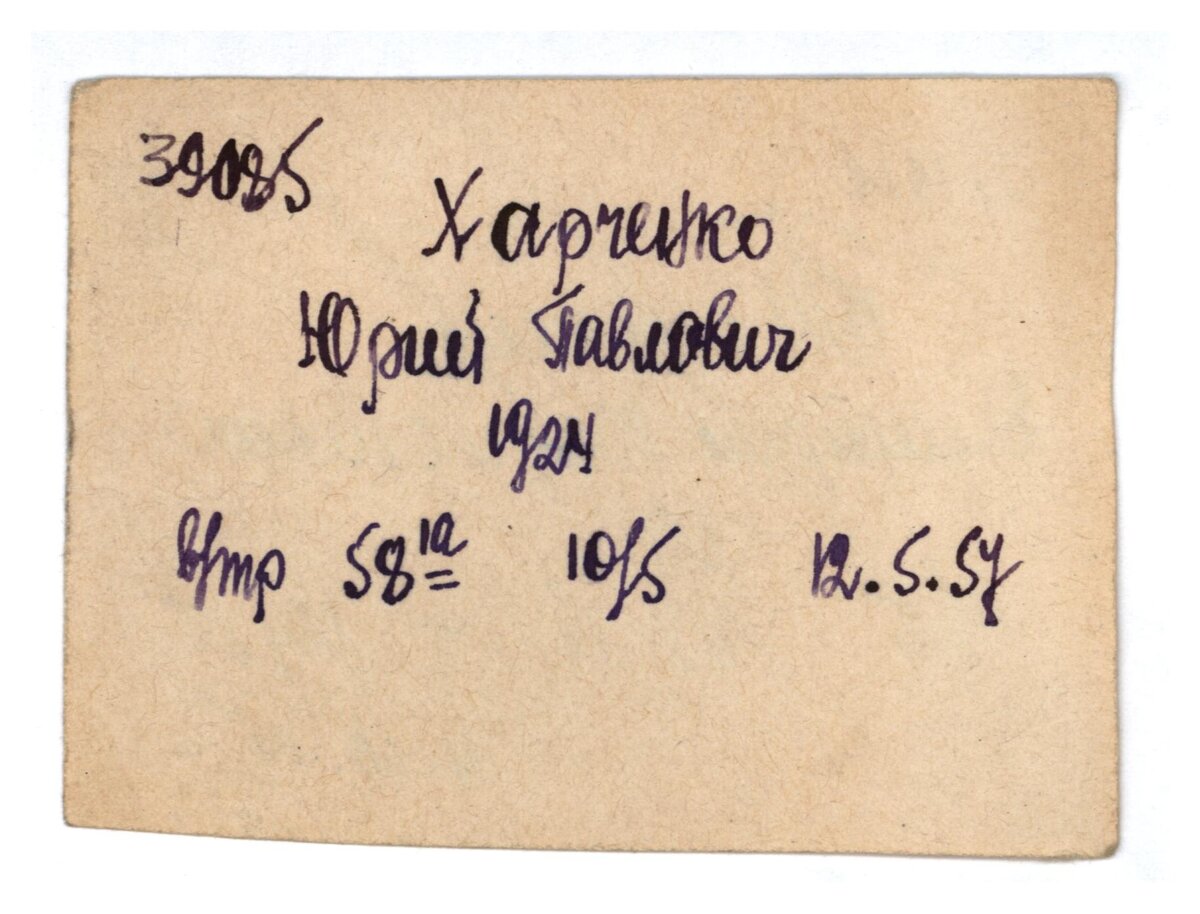 39085
Харченко
Юрий Павлович
1924
вгтр 58 1а 10/5 12.5.57